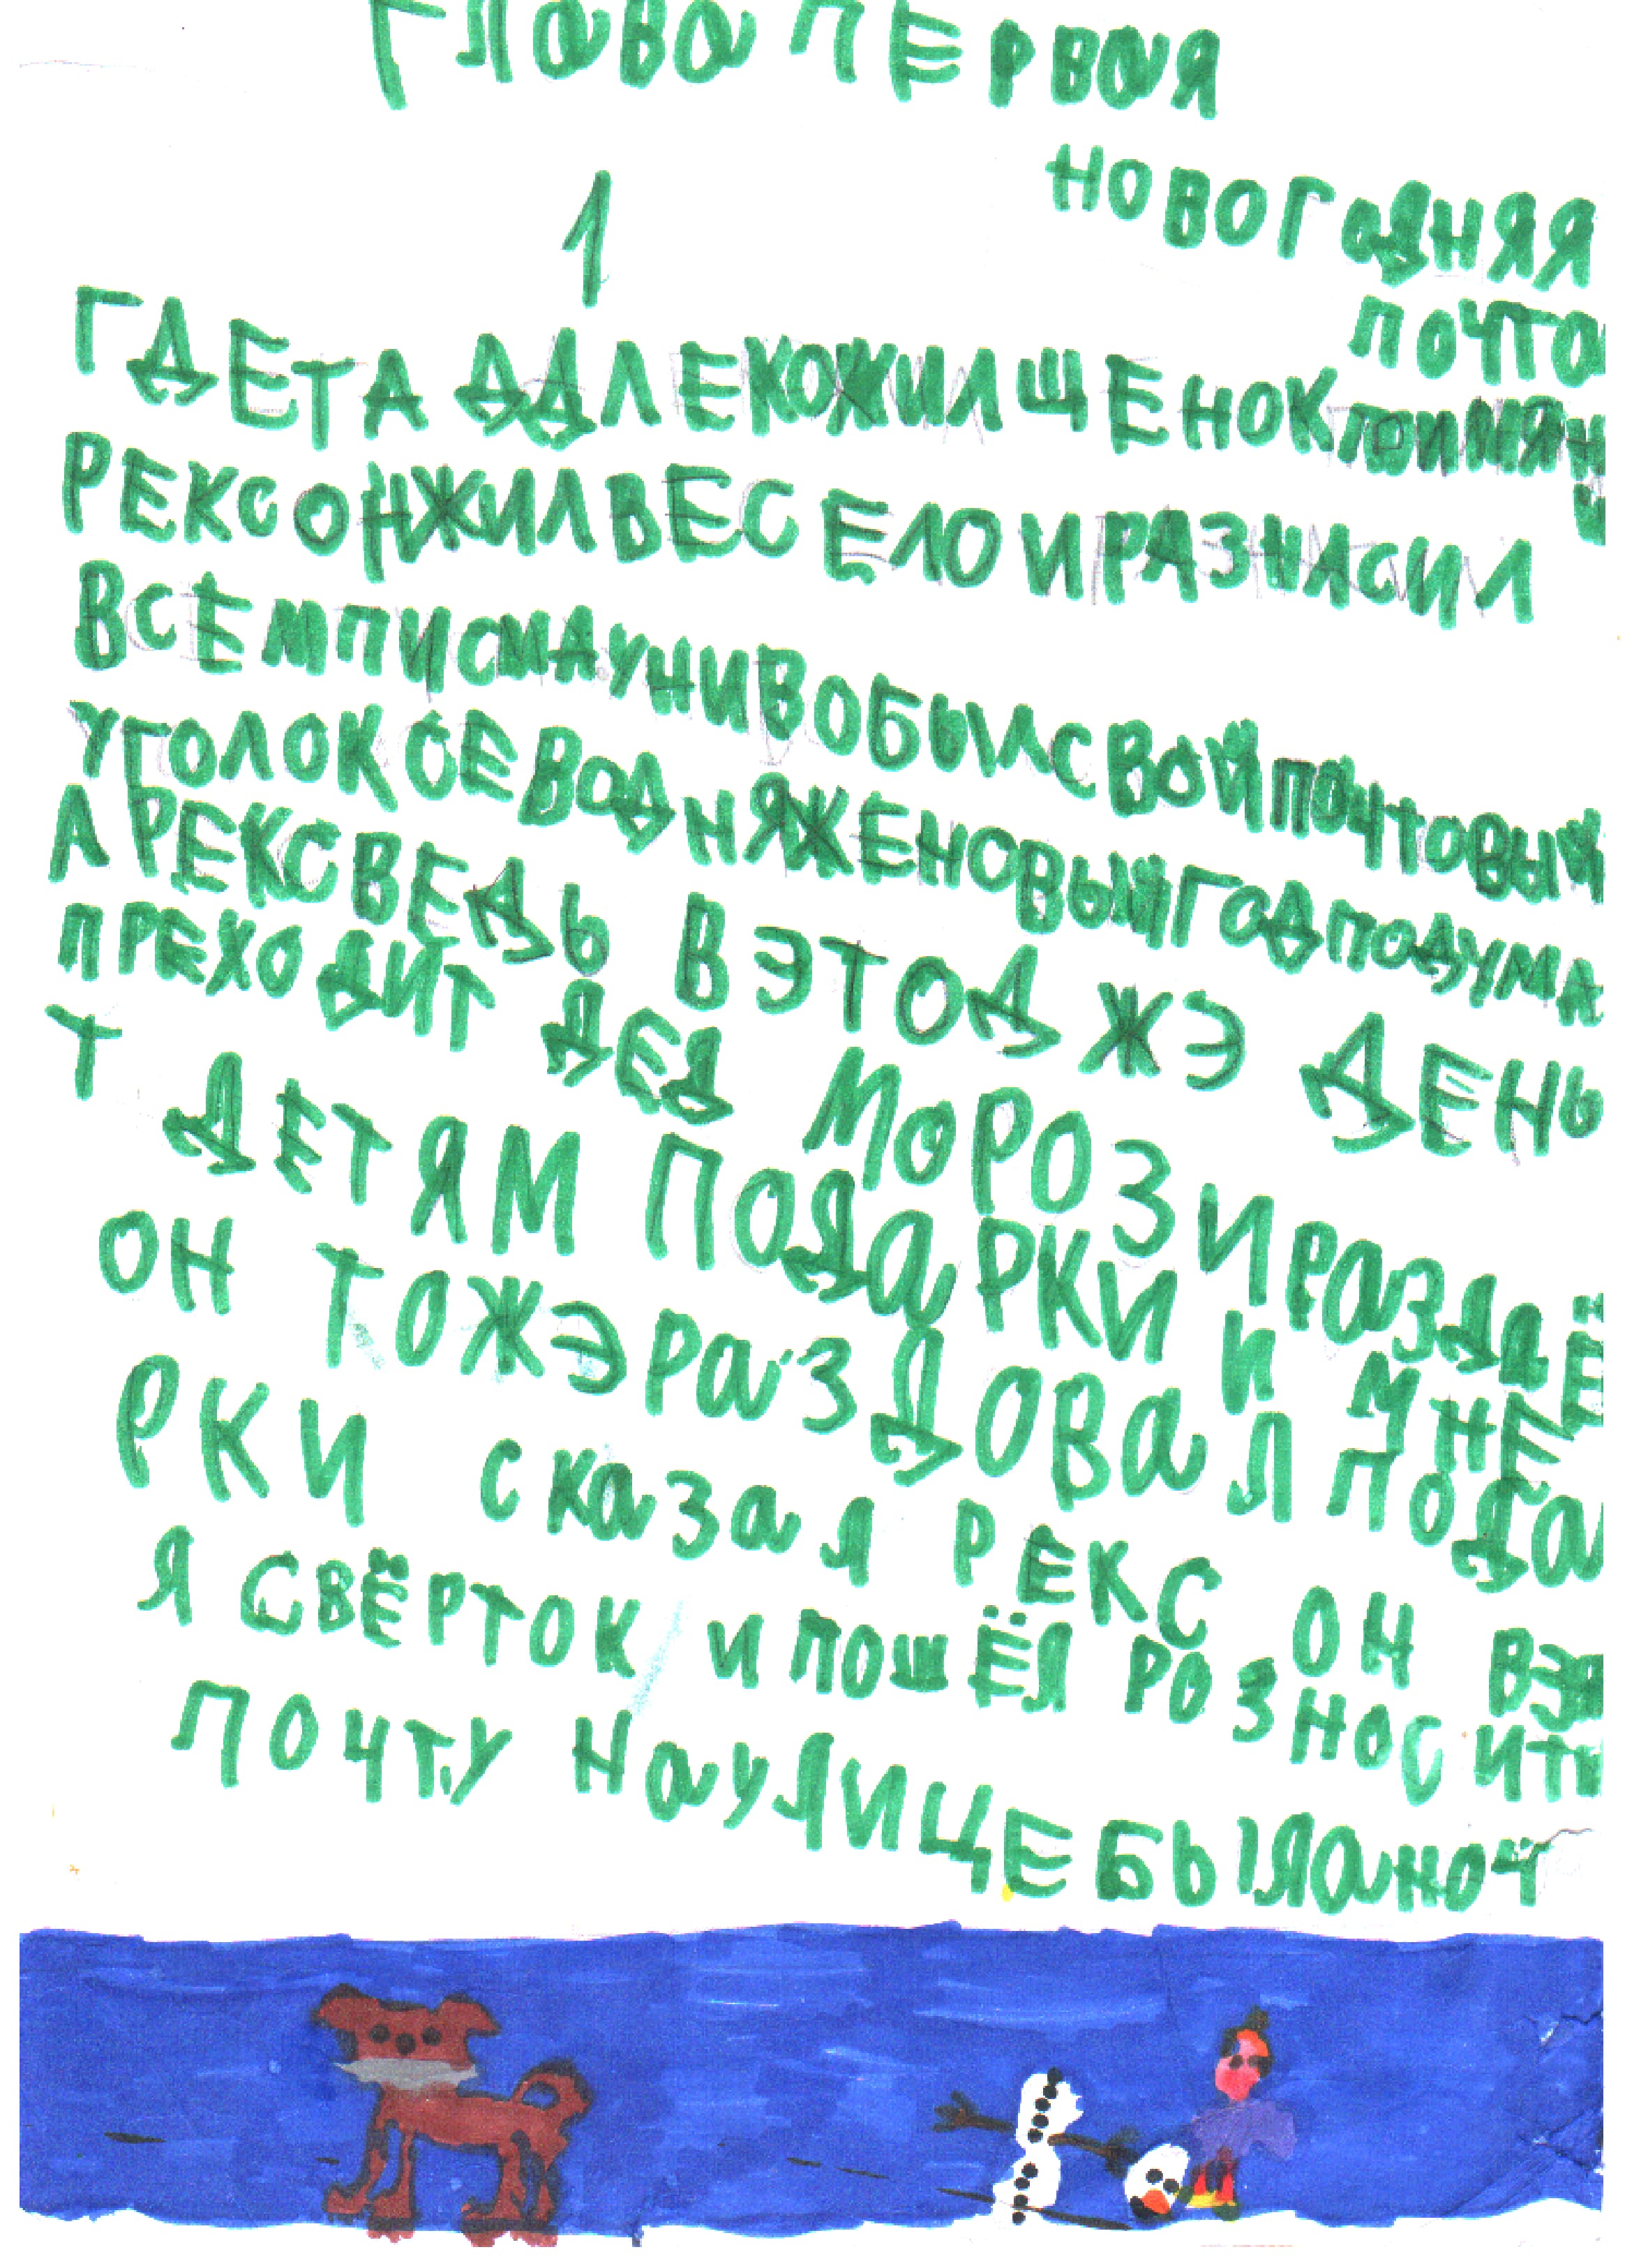 Глава ПЕрвая
НОВОГОДНЯЯ
1
ПОЧТа
ГДЕТА ДДЛЕКОЖИЛЩЕНОКПОИМЯН
И
РЕКСОНЖИЛВЕСЕЛОИРАЗНАСИЛ
ВСЕМПИСМАУНИВОБЫЛСВОЙПОЧТОВЫЙ
УГОЛОКСЕВОДНЯЖЕНОВЫЙГОДПОДУМА
Л РЕКСВЕДЬ ВЭТОД ЖЭ ДЕНЬ
ПРЕХОДИТ ДЕД МОРОЗ И РаЗДаЁ
Т ДЕТЯМ ПОДаРКИ И МНЕ
ОН ТОЖЭ РаЗДОВаЛ ПОДа
РКИ СКаЗаЛ РЕКС ОН ВЗЯ
Л СВЁРТОК И ПОШЁЛ РОЗНОСИТЬ
ПОЧТУ НаУЛИЦЕБЫЛаНОЧ